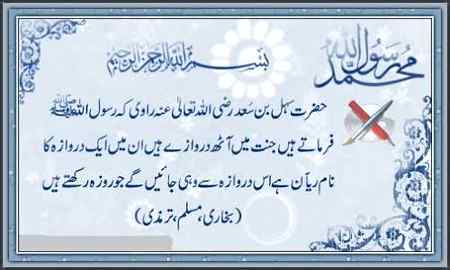 محمد رسول اللہ
بسم اللہ الرحمن الرحیم
حضرت سہل بن سعد رضی اللہ تعالیٰ عنہ راوی کہ رسول اللہ ﷺ
فرماتے ہیں جنت میں آٹھ دروازے ہیں ان میں ایک دروازہ کا
نام ریاّن ہے اس دروازہ سے وہی جائیں گے جو روزہ رکھتے ہیں
(بخاری، مسلم، ترمذی)